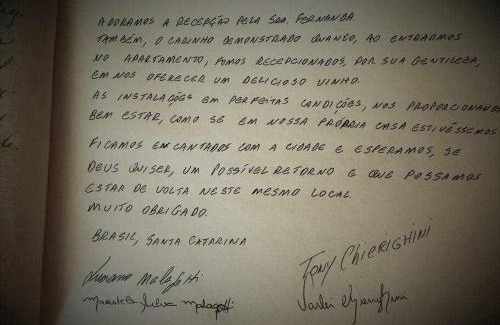 ADORAMOS A RECEPÇÃO PELA SRA. FERNANDA
TAMBÉM, O CARINHO DEMONSTRADO QUANDO, AO ENTRARMOS
NO APARTAMENTO, FOMOS RECEPCIONADOS, POR SUA GENTILEZA,
EM NOS OFERECER UM DELICIOSO VINHO.
AS INSTALAÇÕES EM PERFEITAS CONDIÇÕES, NOS PROPORCIONANDO
BEM ESTAR, COMO SE EM NOSSA PRÓPRIA CASA ESTIVÉSSEMOS
FICAMOS ENCANTADOS COM A CIDADE E ESPERAMOS, SE
DEUS QUISER, UM POSSÍVEL RETORNO E QUE POSSAMOS
ESTAR DE VOLTA NESTE MESMO LOCAL.
MUITO OBRIGADO.
BRASIL, SANTA CATARINA
TONY CHIERIGHINI
Luciano Malagotti
Malagotti